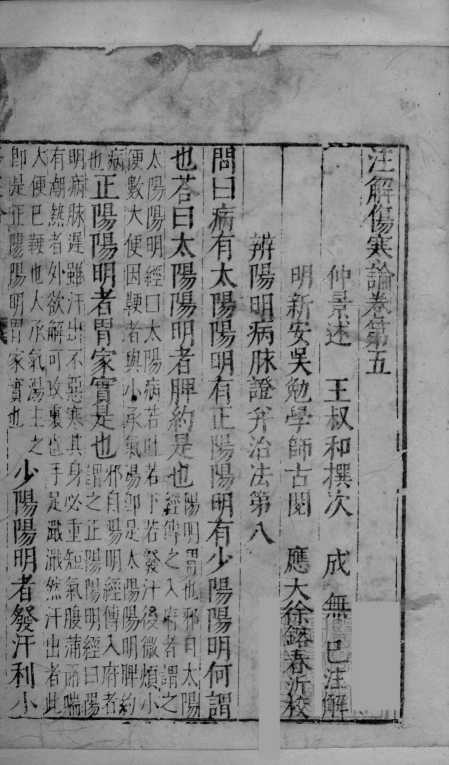 注解傷寒論卷第五
仲景述 王叔和撰次 成無已注解
明新安吳勉學師古閱 應大徐鎔春沂校
辨陽明病脉證并治法第八
問曰病有太陽陽明有正陽陽明有少陽陽明何謂
也荅曰太陽陽明者脾約是也陽明胃也邪自太陽
經傳之入府者謂之
太陽陽明經曰太陽病若吐若下若發汗後微煩小
便數大便因鞕者與小承氣湯卽是太陽陽明脾約
病
也正陽陽明者胃家實是也邪自陽明經傳入府者
謂之正陽陽明經曰陽
明病脉遲雖汗出不惡寒其身必重短氣腹滿而喘
有潮熱者外欲解可攻裏也手足濈濈然汗出者此
大便巳鞕也大承氣湯主之
卽是正陽陽明胃家實也少陽陽明者發汗利小